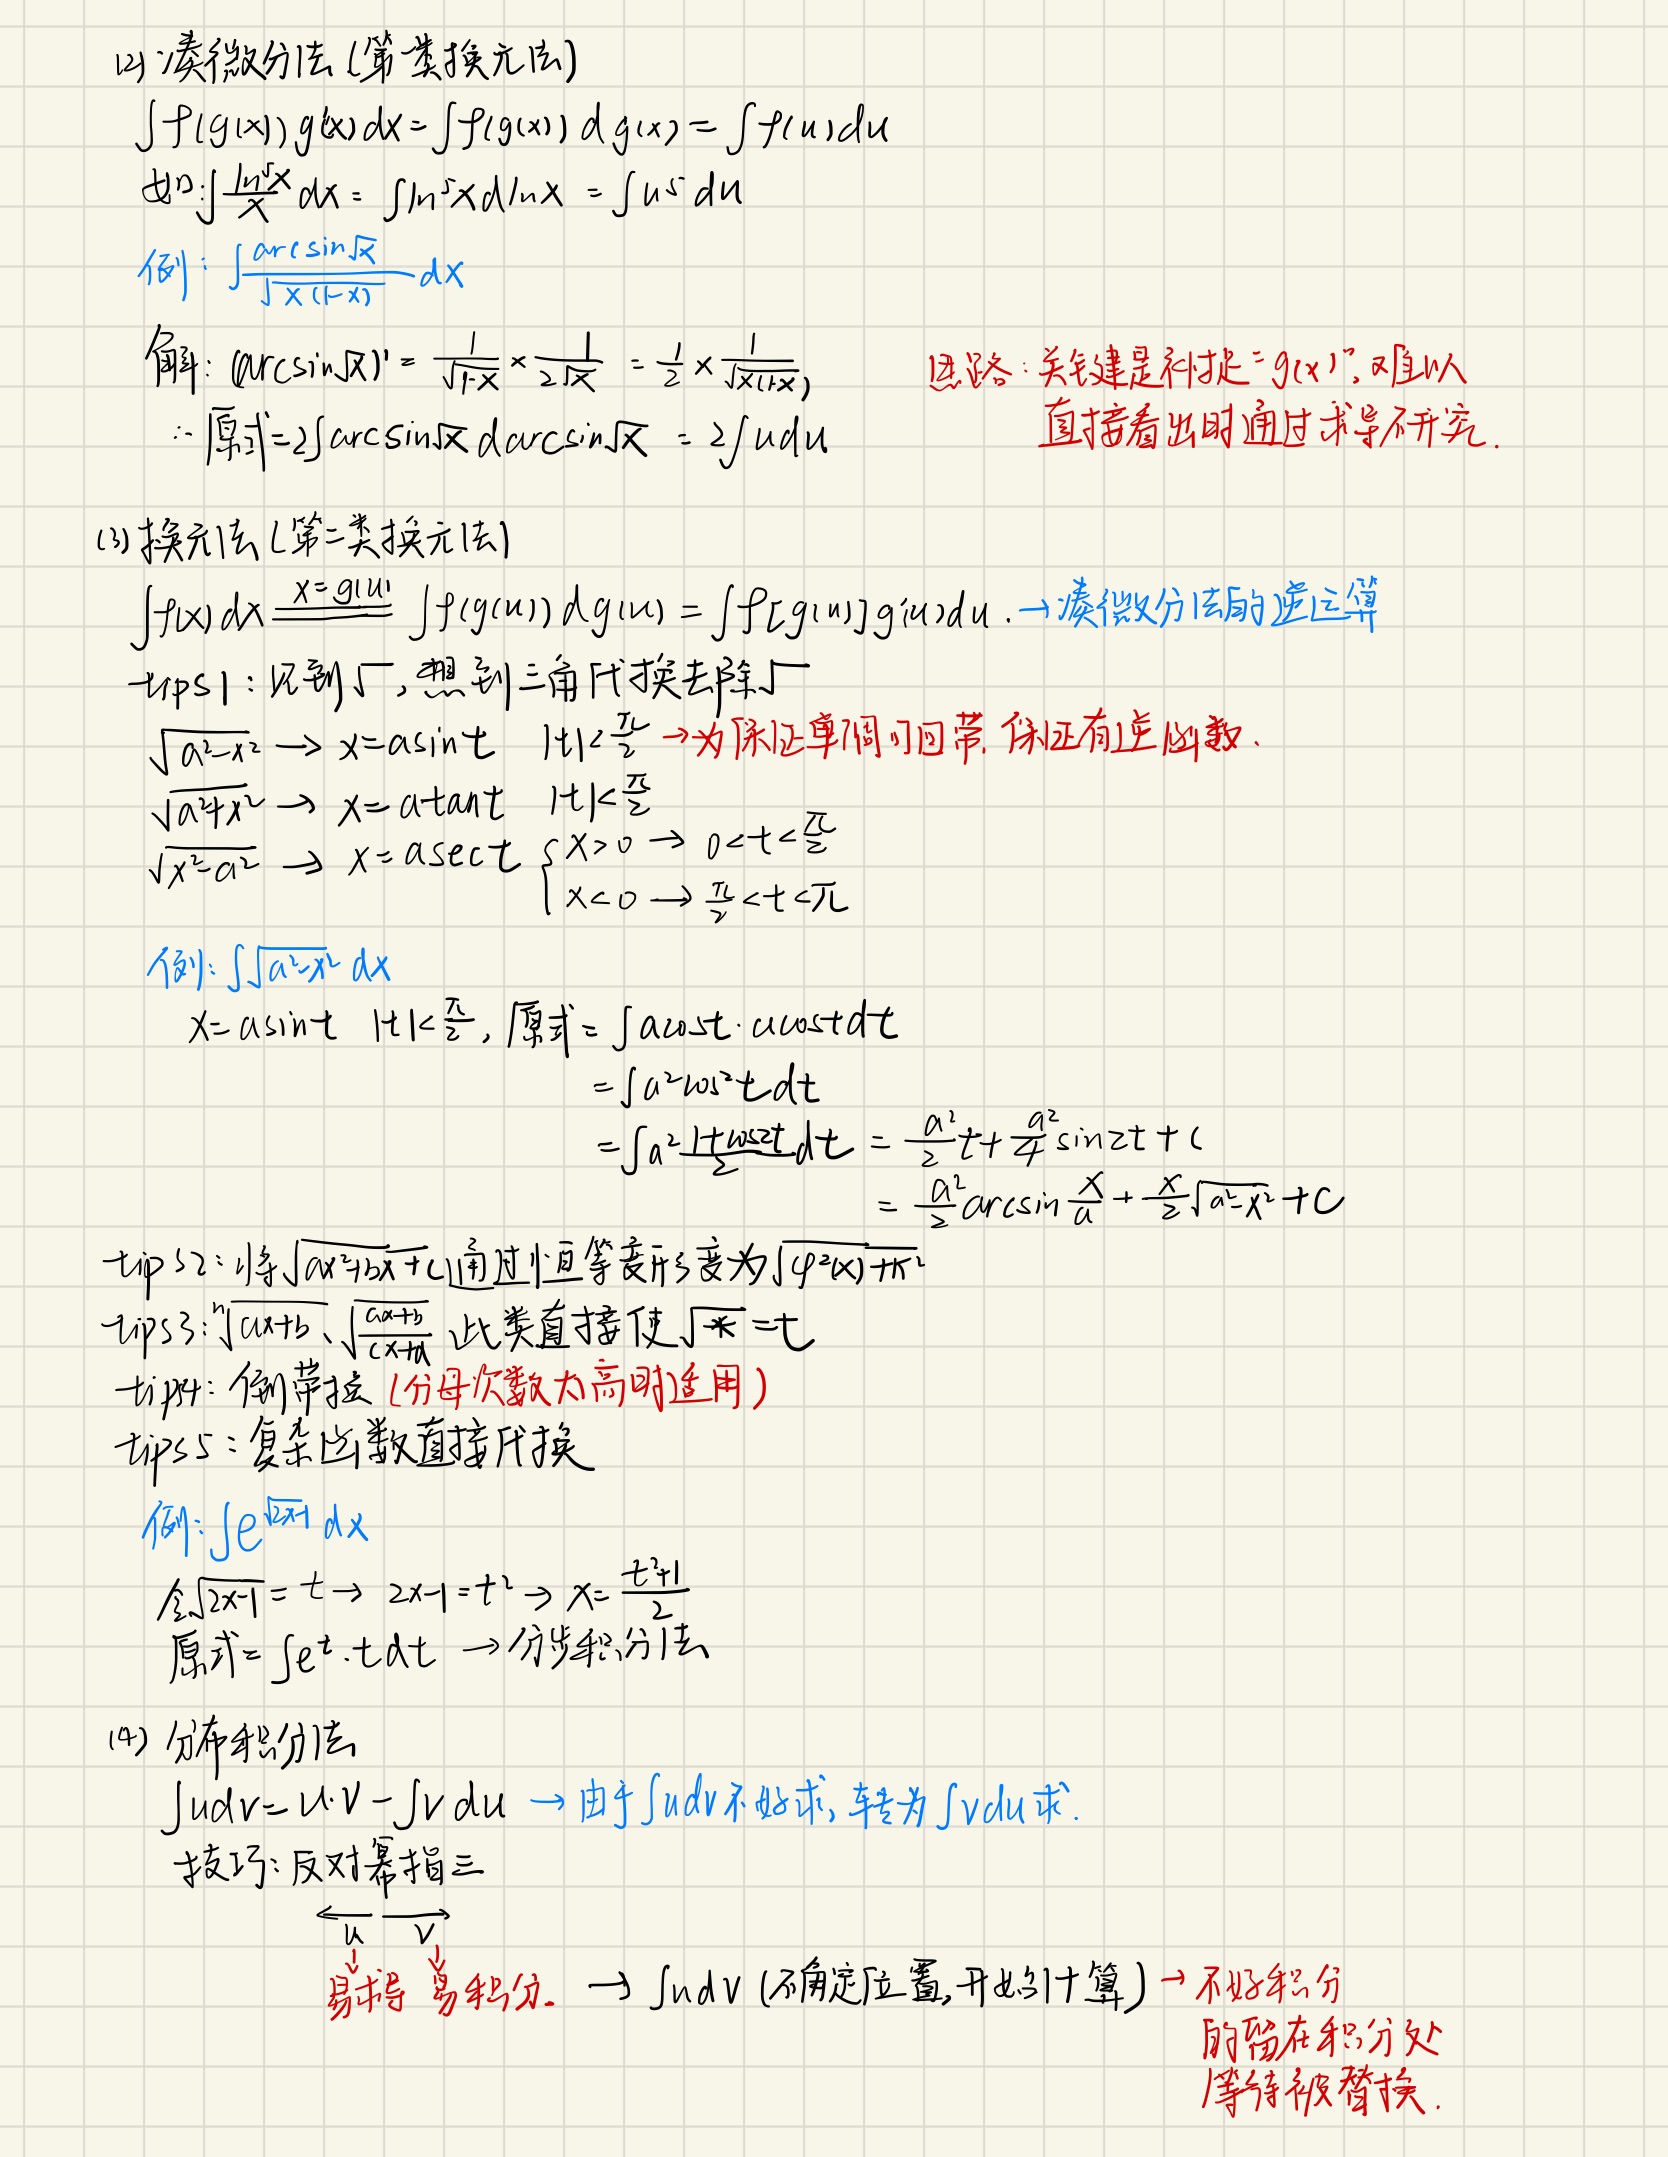 (2) 凑微分法(第一类换元法)
∫f(g(x))g'(x)dx=∫f(g(x))dg(x)=∫f(u)du
如:∫ln⁵x/x dx=∫ln⁵xdlnx=∫u⁵du
例:∫arcsin√x/√(x(1-x)) dx
解:(arcsin√x)'=1/√(1-x)×1/(2√x)=1/2×1/√(x(1-x))
思路:关键是补捉"g(x)",难以
∴原式=2∫arcsin√x darcsin√x=2∫udu
直接看出时通过求导研究.
(3)换元法(第二类换元法)
∫f(x)dx x=g(u) ∫f(g(u))dg(u)=∫f[g(u)]g'(u)du.→凑微分法的逆运算
tips1:见到√,想到三角代换去除√
√(a²-x²)→x=asint |t|<π/2→为保证单调可回带,保证有逆函数.
√(a²+x²)→x=atant |t|<π/2
√(x²-a²)→x=asect { x>0→0<t<π/2
x<0→π/2<t<π
例:∫√(a²-x²) dx
x=asint |t|<π/2,原式=∫acost·acostdt
=∫a²cos²tdt
=∫a²(1+cos2t)/2 dt=a²/2 t+a²/4 sin2t+C
=a²/2 arcsin x/a+x/2 √(a²-x²)+C
tips2:将√(ax²+bx+c)通过恒等变形变为√(φ²(x)+k²)
tips3:ⁿ√(ax+b)、√((ax+b)/(cx+d))此类直接使√*=t
tips4:倒带换(分母次数太高时适用)
tips5:复杂函数直接代换
例:∫e^√(2x-1) dx
令√(2x-1)=t→2x-1=t²→x=(t²+1)/2
原式=∫eᵗ·tdt→分步积分法
(4) 分布积分法
∫udv=u·v-∫vdu→由于∫udv不好求,转为∫vdu求.
技巧:反对幂指三
← →
u v
↓ ↓
易求导 易积分.→∫udv(不确定位置,开始计算)→不好积分
的留在积分处
等待被替换.